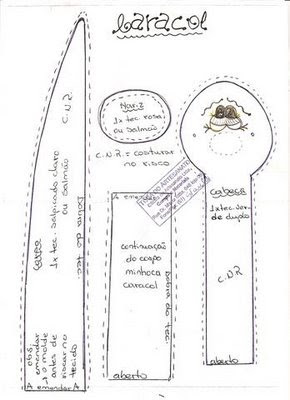 Caracol
Nariz
1x tec. rosa
ou salmão
C.N.R. = costurar
no risco
Corpo
1x tec. salpicado claro
ou salmão
C.N.R.
Dobra do tec.
obs:
emendar
o molde
antes de
riscar no
tecido
A emendar A
A emendar A
continuação
do corpo
minhoca
caracol
dobra do tec.
aberto
Cabeça
1x tec. ver
de duplo
C.N.R
aberto